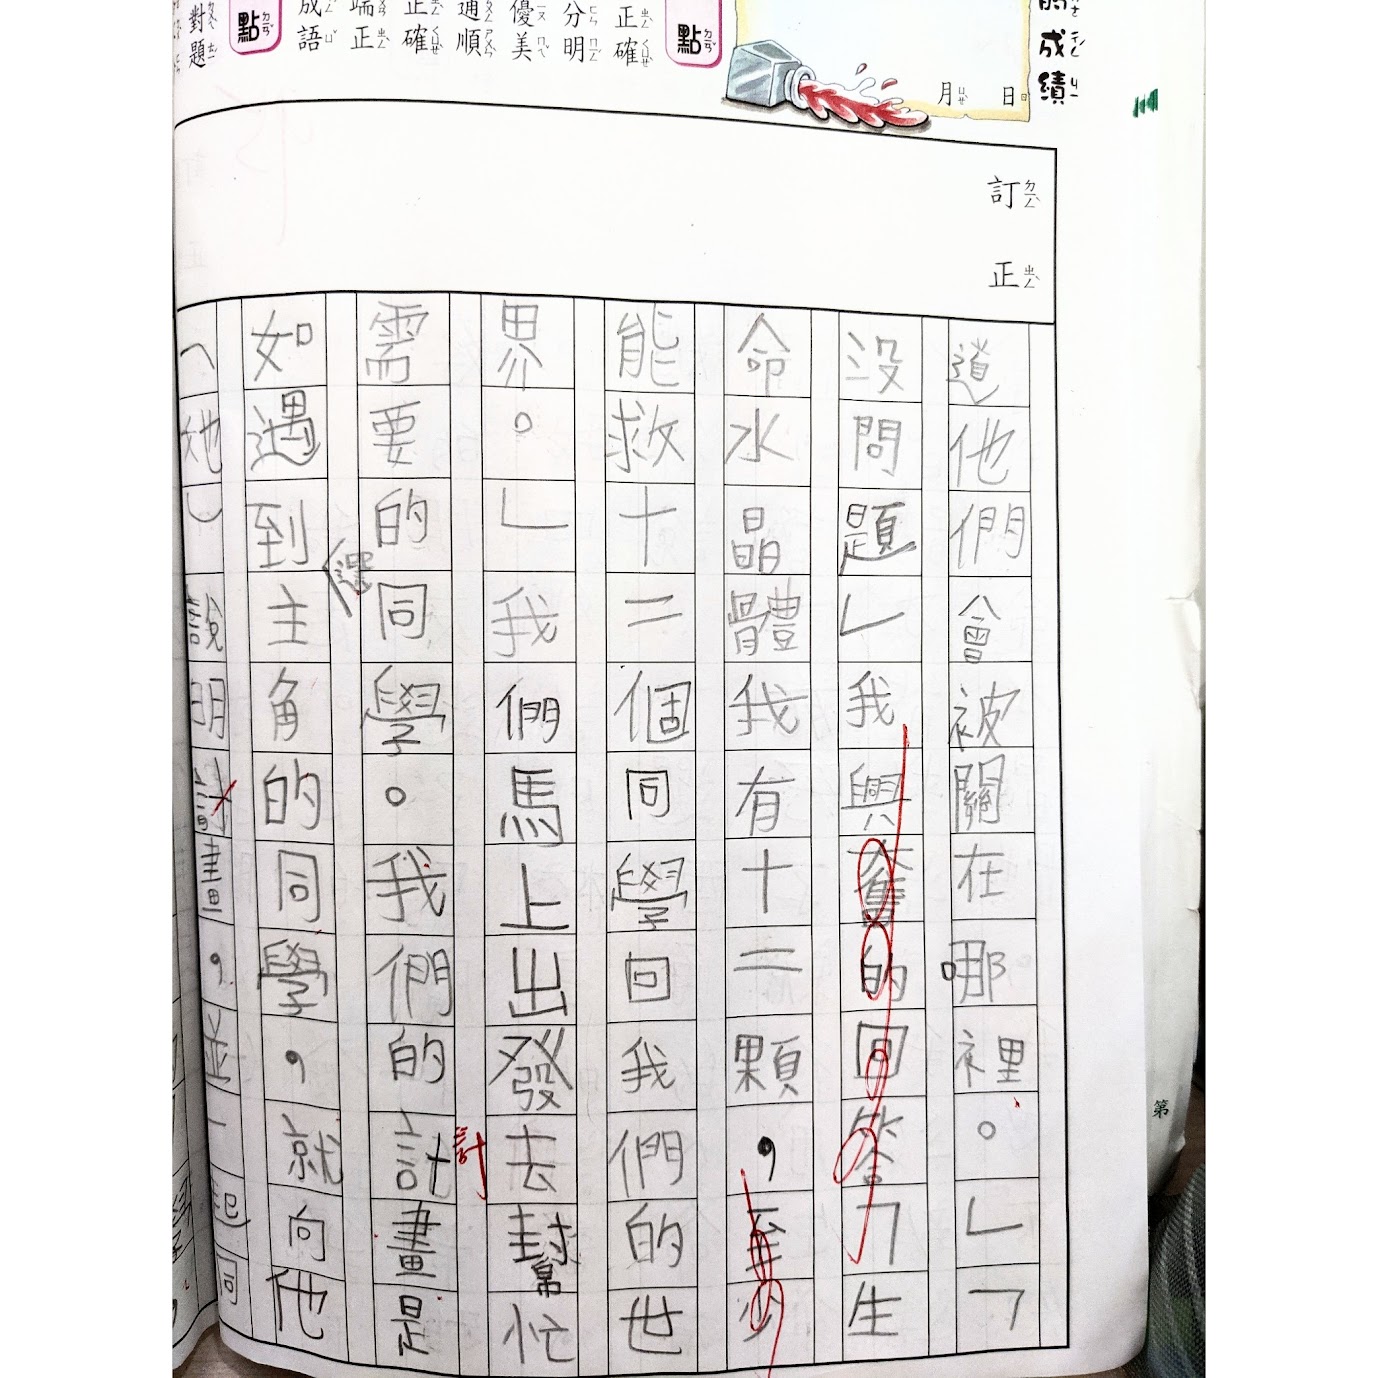 的成績
月 日
點
正確
分明
優美
通順
正確
端正
成語
點
對題
訂正
道他們會被關在哪裡。」「
沒問題」我興奮的回答「生
命水晶體我有十二顆，至少
能救十二個同學回我們的世
界。」我們馬上出發去幫忙
需要的同學。我們的計畫是
計
還
如遇到主角的同學，就向他
（她）說明計畫，並一起同
第